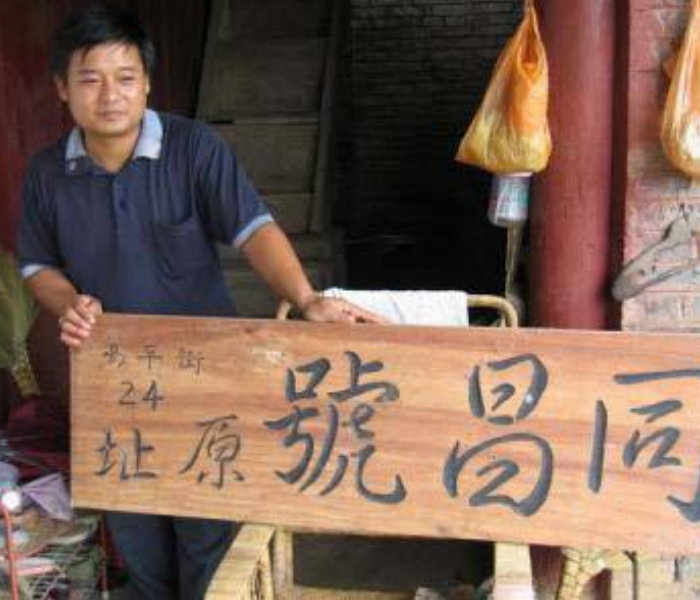 同昌號原址
平街
24